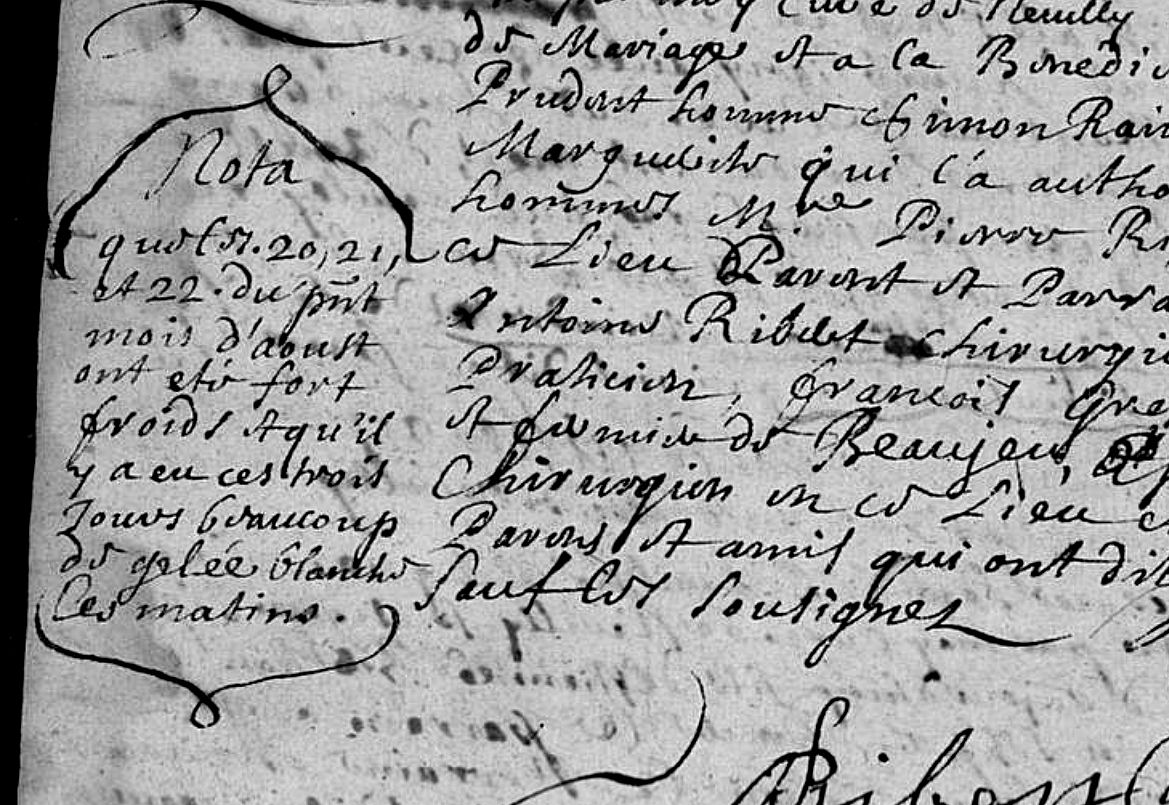 Nota
que les. 20, 21,
et 22. du pñt
mois d'aoust
ont eté fort
froids et qu'il
y a eu ces trois
Jours beaucoup
de gelée blanche
Les matins.
moy Curé de Neuilly
de Mariage et a la Benedic
Prudent homme Simon Rai
Marguerite qui l'a autho
hommes Mre Pierre R
ce Lieu Parent et Parra
Antoine Ribelet chirurgi
Praticien, françois Gre
et fermier de Beaujeu,
Chirurgien en ce Lieu
Parens et amis qui ont dit
Sauf les Sousignes